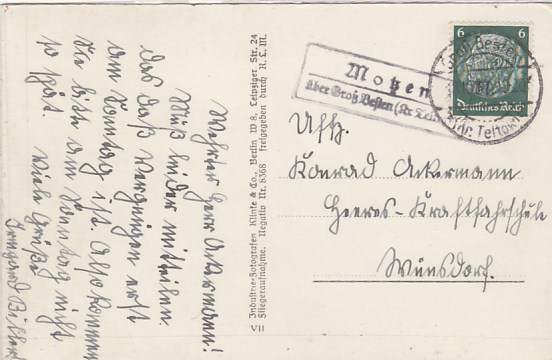 Werter Herr Ackermann!
Muß leider mitteilen.
das daß Vergnügen erst
am Sonntag ist. Also kommen
Sie bitte am Sonntag nicht
so spät. Viele Grüße
Irmgard
VII
Industrie-Fotografen Klinke & Co., Berlin W 8, Leipziger Str. 24
Fliegeraufnahme. Negativ Nr. 8368 freigegeben durch R. L. M.
Motzen
über Groß Besten (Kr Tel
6 6
Deutsches Reich
Groß Besten
(Kr. Teltow)
Uffz.
Konrad Ackermann
Heeres-Kraftfahrschule
Wünsdorf.